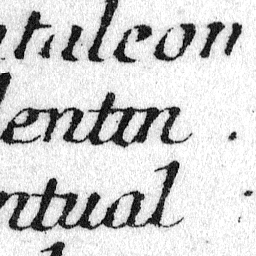 ntaleon
lentin .
ntual